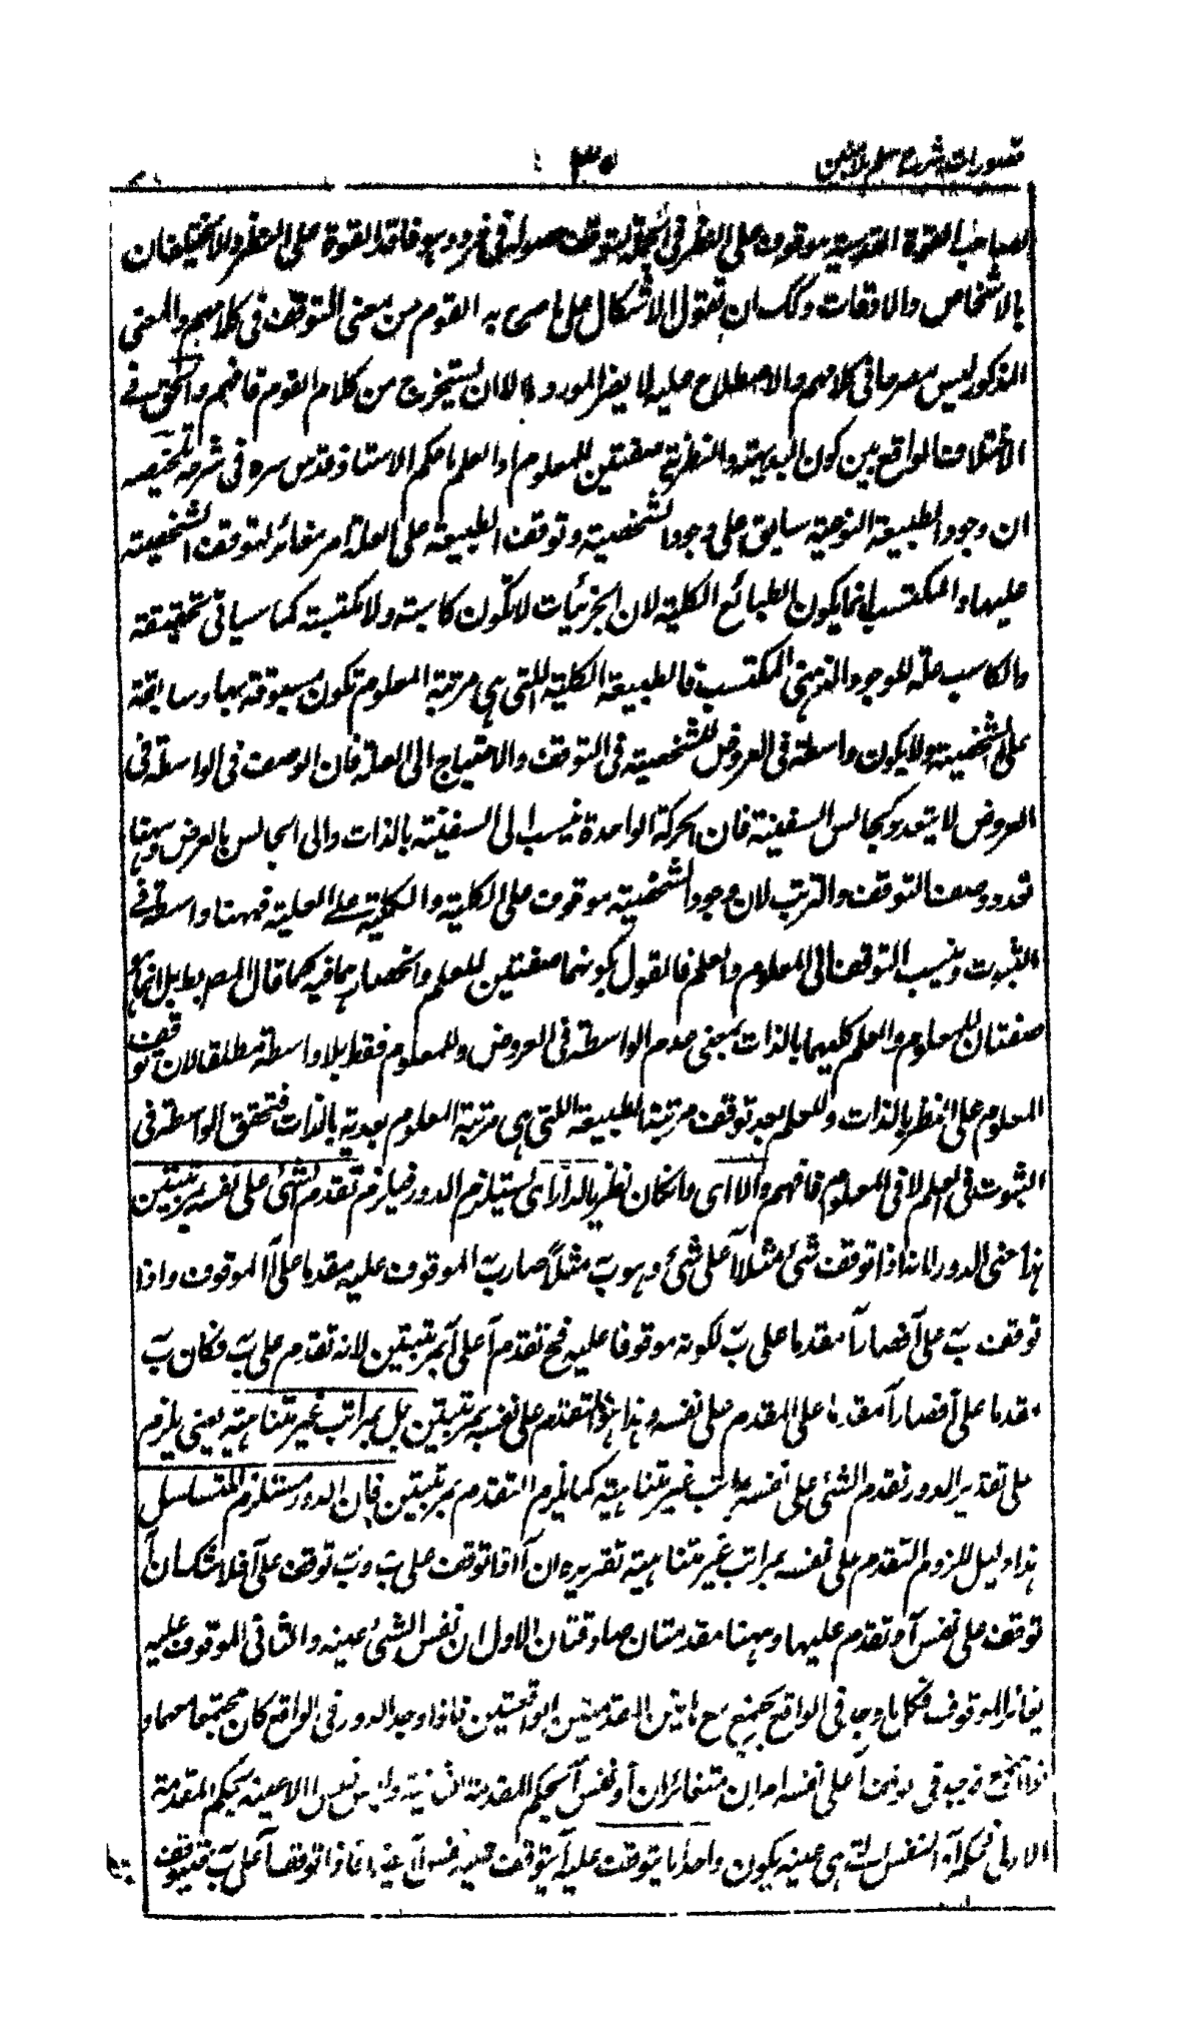 تصورات شرح سلم ملا مبين
٣٥
لصاحب القوة القدسية موقوف على النظر في الجملة لتوقف حصوله في فرد وهو فاقد القوة على النظر ولا يختلفان
بالاشخاص والاوقات ولك ان تقول الاشكال على ما صرح به القوم من معنى التوقف في كلامهم والمعنى
المذكور ليس مصرحا في كلامهم والاصطلاح عليه لا يضر المورد الا ان يستخرج من كلام القوم فافهم والحق في
الاختلاف الواقع بين كون البديهية والنظرية صفتين للمعلوم او العلم ما حكم الاستاذ قدس سره في شرحه تلخيصه
ان وجود الطبيعة النوعية سابق على وجود الشخصية وتوقف الطبيعة على العلة امر مغائر لتوقف الشخصية
عليها والمكتسب انما يكون الطبائع الكلية لان الجزئيات لا تكون كاسبة ولا مكتسبة كما سياتي تحقيقه
والكاسب علة للوجود الذهني المكتسب فالطبيعة الكلية اللتي هي مرتبة المعلوم تكون مسبوقة بها وسابقة
على الشخصية ولا يكون واسطة في العروض للشخصية في التوقف والاحتياج الى العلة فان الوصف في الواسطة في
العروض لا يتعدد كجالس السفينة فان الحركة الواحدة ينسب الى السفينة بالذات والى الجالس بالعرض وههنا
تعدد وصف التوقف والترتب لان وجود الشخصية موقوف على الكلية والكلية على العلية فههنا واسطة في
الثبوت وينسب التوقف الى المعلوم والعلم فالقول بكونهما صفتين للعلم وانحصارهما فيه كما قال المصـ بط بل انهما
صفتان للمعلوم والعلم كليهما بالذات بمعنى عدم الواسطة في العروض وللمعلوم فقط بلا واسطة مطلقا لان توقف
المعلوم على النظر بالذات وللعلم بعد توقف مرتبة الطبيعة اللتي هي مرتبة المعلوم بعدية بالذات فتحقق الواسطة في
الثبوت في العلم لا في المعلوم فافهم والا اى وان كان نظريا لدار اى يستلزم الدور فيلزم تقدم الشئ على نفسه بمرتبتين
هذا معنى الدور لانه اذا توقف شئ مثلا آ على شئ وهو ب مثلاً صار ب الموقوف عليه مقدما على آ الموقوف واذا
توقف ب على آ فصار آ مقدما على ب لكونه موقوفا عليه فح تقدم آ على آ بمرتبتين لانه تقدم على ب فكان ب
مقدما على آ فصار آ مقدما على المقدم على نفسه وهذا هو التقدم على نفسه بمرتبتين بل بمراتب غير متناهية يعنى يلزم
على تقدير الدور تقدم الشئ على نفسه بمراتب غير متناهية كما يلزم التقدم بمرتبتين فان الدور مستلزم للتسلسل
هذا دليل للزوم التقدم على نفسه بمراتب غير متناهية تقريره ان آ اذا توقف على ب وب توقف على آ فلا شك ان آ
توقف على نفس آ وتقدم عليها وههنا مقدمتان صادقتان الاول ان نفس الشئ عينه والثاني الموقوف عليه
يغائر الموقوف فكلما وجد في الواقع يجتمع مع هاتين المقدمتين الواقعيتين فاذا وجد الدور في الواقع كان مجتمعا معهما و
على نفسه امران متغائران آ ونفس آ بحكم المقدمة الثانية وليس نفس آ الا عينه بحكم المقدمة
الاولى فحكم آ النفس التي هي عينه يكون واحدا ما يتوقف عليه آ يتوقف عليه نفس آ فاذا توقف آ على ب فيتوقف